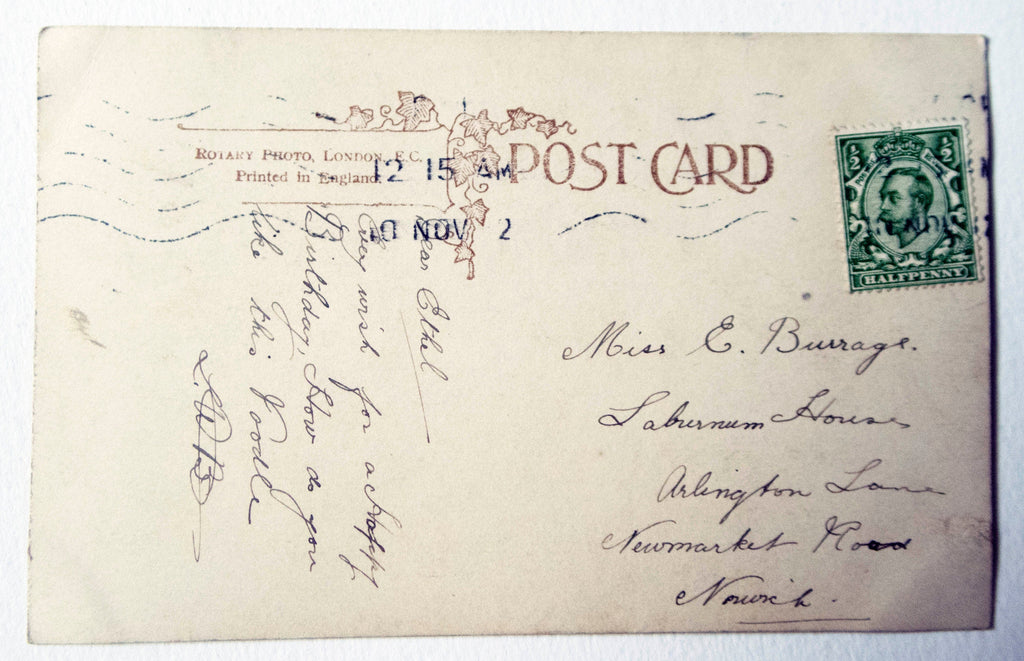 ROTARY PHOTO, LONDON, E.C.
Printed in England.
POST CARD
12 15 AM
10 NOV 2
½ ½
HALFPENNY
Dear Ethel
Every wish for a Happy
Birthday, How do you
like this Poodle
Miss E. Burrage.
Laburnum House
Arlington Lane
Newmarket Road
Norwich.